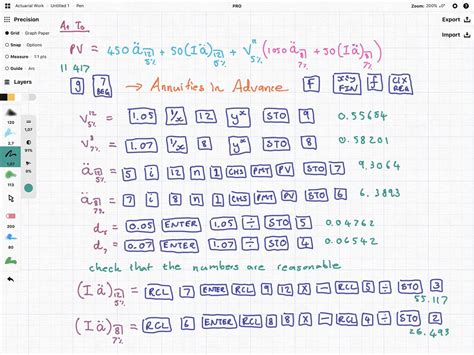 Actuarial Work Untitled 1 Pen PRO Zoom: 200%
Precision
Grid Graph Paper
Snap Options
Measure 1:1 pts
Guide Arc
Layers
Export
Import
A1 To
PV = 450 ä 12| 5% + 50 (Iä) 12| 5% + V 12 5% (1050 ä 8| 7% + 50 (Iä) 8| 7%)
11 417
g 7 BEG → Annuities in Advance f x≷y FIN f CLX REG
V 12 5% = 1.05 1/x 12 yˣ STO 9 0.55684
V 8 7% = 1.07 1/x 8 yˣ STO 8 0.58201
ä 12| 5% = 5 i 12 n 1 CHS PMT PV STO 7 9.3064
ä 8| 7% = 7 i 8 n 1 CHS PMT PV STO 6 6.3893
d 5 = 0.05 ENTER 1.05 ÷ STO 5 0.04762
d 7 = 0.07 ENTER 1.07 ÷ STO 4 0.06542
check that the numbers are reasonable
(Iä) 12| 5% = RCL 7 ENTER RCL 9 12 X − RCL 5 ÷ STO 3
55.117
(Iä) 8| 7% = RCL 6 ENTER RCL 8 8 X − RCL 4 ÷ STO 2
26.493
120
1,07
91%
1,67
113